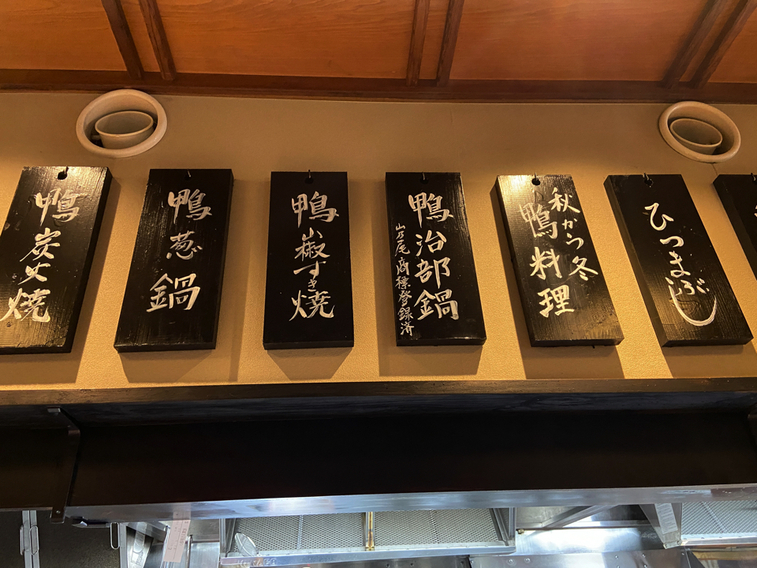 ひつまぶし
秋から冬
鴨料理
鴨治部鍋
山乃尾 商標登録済
鴨山椒すき焼
鴨葱鍋
鴨炭火焼